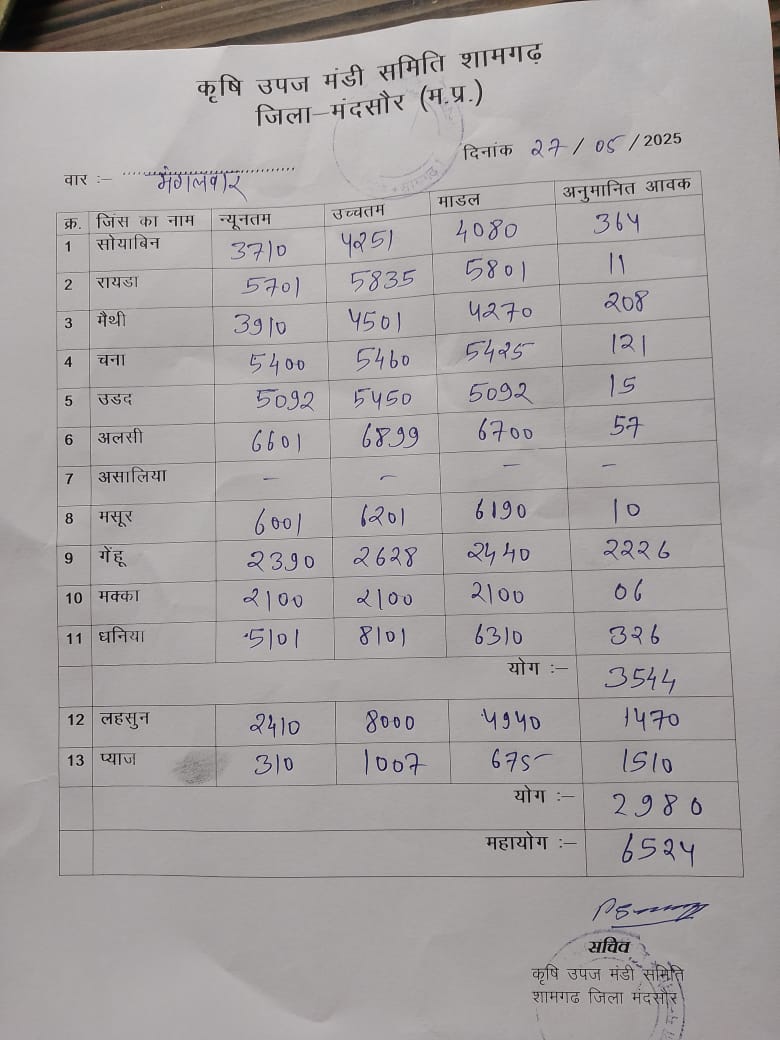 कृषि उपज मंडी समिति शामगढ़
जिला–मंदसौर (म.प्र.)
दिनांक 27 / 05 / 2025
वार :– मंगलवार
क्र. जिंस का नाम न्यूनतम उच्चतम माडल अनुमानित आवक
1 सोयाबिन 3710 4251 4080 364
2 रायडा 5701 5835 5801 11
3 मैथी 3910 4501 4270 208
4 चना 5400 5460 5425 121
5 उडद 5092 5450 5092 15
6 अलसी 6601 6899 6700 57
7 असालिया – – – –
8 मसूर 6001 6201 6190 10
9 गेंहू 2390 2628 2440 2226
10 मक्का 2100 2100 2100 06
11 धनिया 5101 8101 6310 326
योग :– 3544
12 लहसुन 2410 8000 4940 1470
13 प्याज 310 1007 675 1510
योग :– 2980
महायोग :– 6524
सचिव
कृषि उपज मंडी समिति
शामगढ जिला मंदसौर